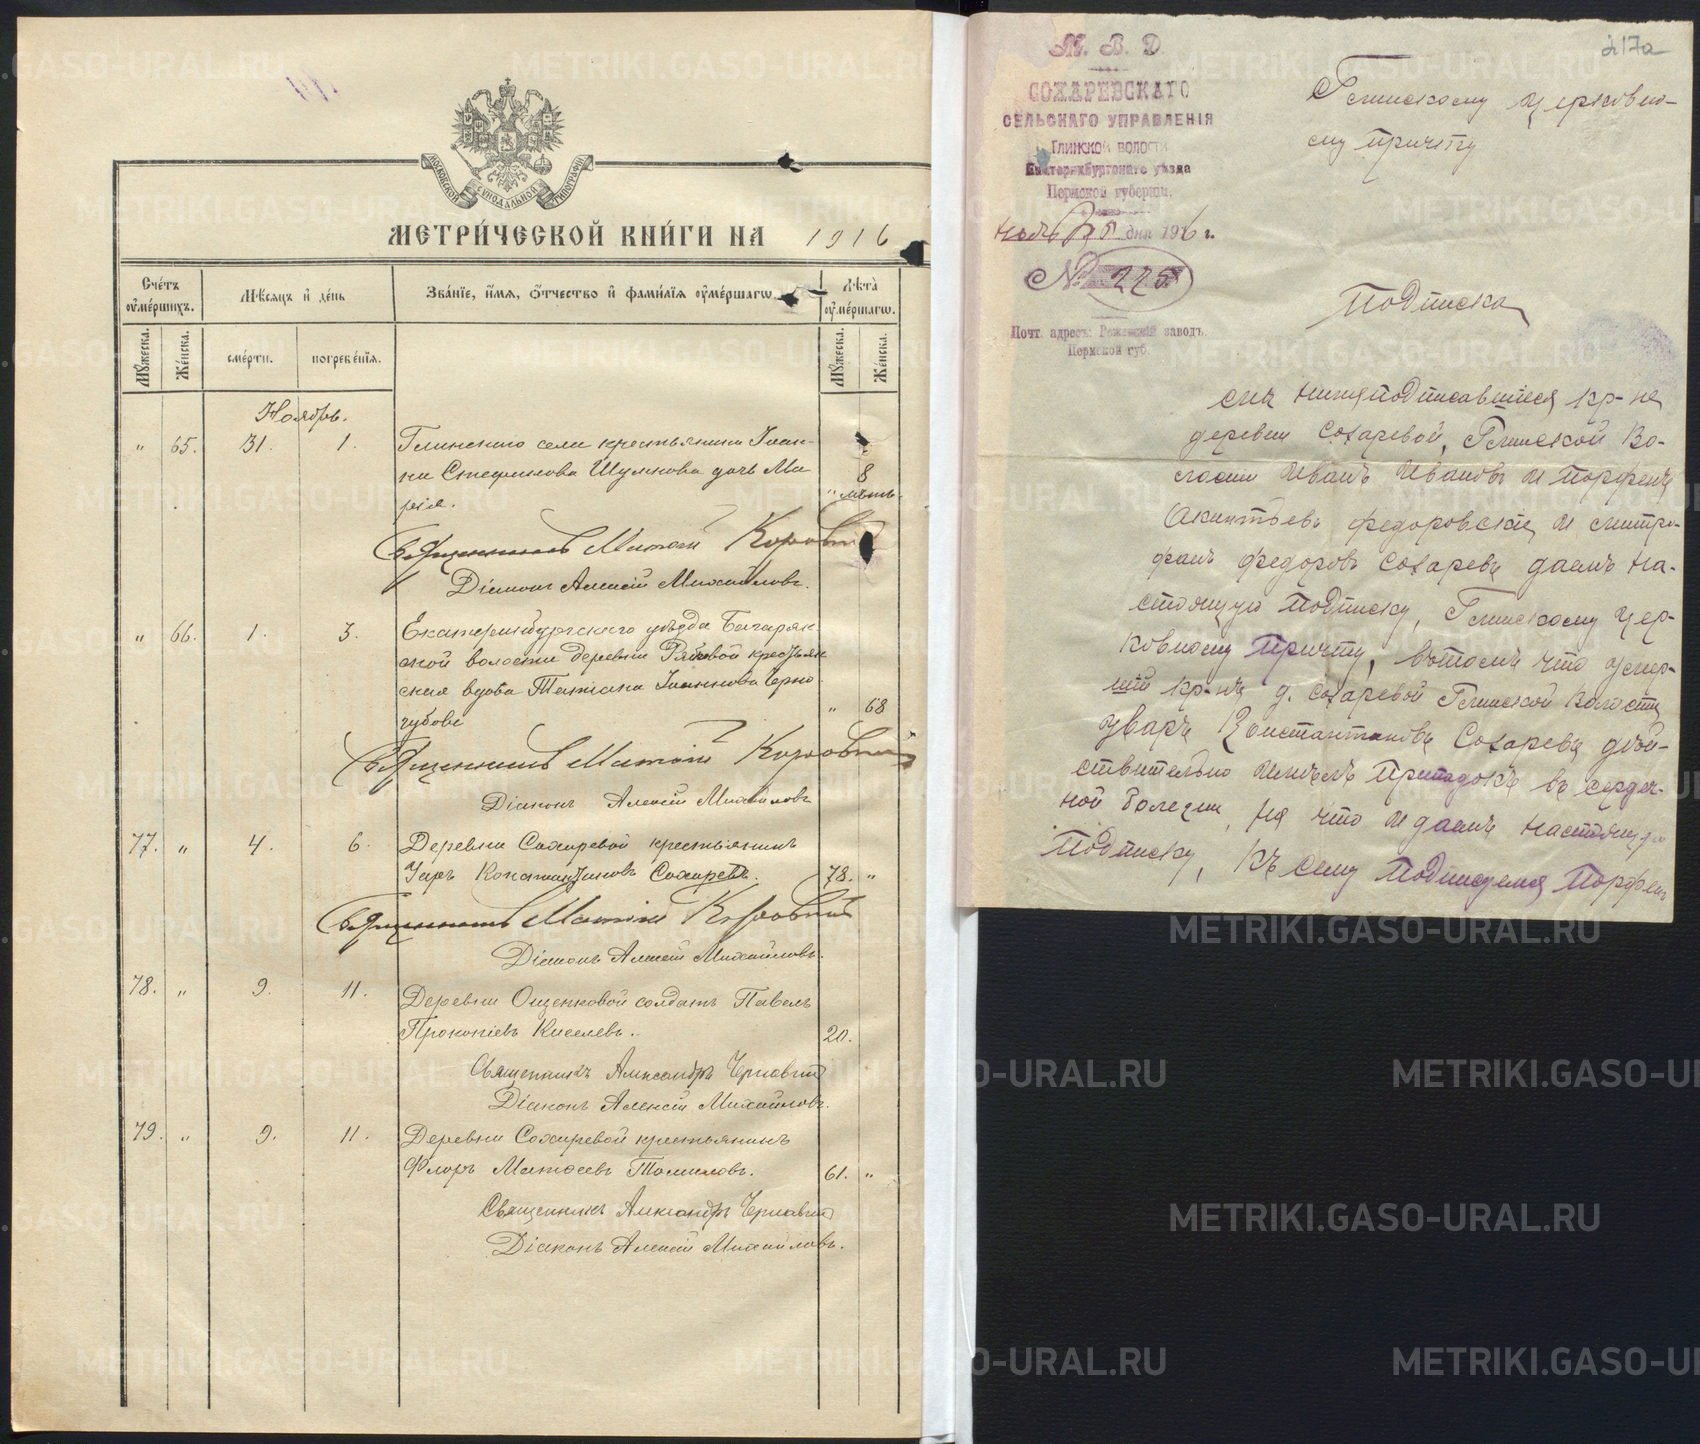 МОСКОВСКОЙ СѴНОДАЛЬНОЙ ТИПОГРАФІИ
МЕТРИ́ЧЕСКОЙ КНИ́ГИ НА 1916
Сче́тъ ᲂу҆ме́ршихъ.
Мѣ́сяцъ и҆ де́нь
Зва́нїе, и҆́мя, ѻ҆́тчество и҆ фами́лїя ᲂу҆ме́ршагѡ.
Лѣ́та ᲂу҆ме́ршагѡ.
Мꙋ́жеска.
Же́нска.
сме́рти.
погребе́нїя.
Мꙋ́жеска.
Же́нска.
Ноябрь.
" 65. 31. 1. Глинскаго села крестьянина Іоан-
на Стефанова Шумкова дочь Ма- 8
рія. " мѣсть.
Священникъ Матѳій Коровинъ
Діаконъ Алексій Михайловъ.
" 66. 1. 3. Екатеринбургскаго уѣзда Багаряк
ской волости деревни Рябковой крестьян
ская вдова Татіана Іоаннова Черно-
губова " 68
Священникъ Матѳій Коровинъ
Діаконъ Алексій Михайловъ
77. " 4. 6. Деревни Сохаревой крестьянинъ
Уаръ Константиновъ Сохаревъ. 78. "
Священникъ Матѳій Коровинъ
Діаконъ Алексій Михайловъ.
78. " 9. 11. Деревни Ощепковой солдатъ Павелъ
Прокопіевъ Киселевъ. 20.
Священникъ Александръ Черновъ
Діаконъ Алексій Михайловъ.
79. " 9. 11. Деревни Сохаревой крестьянинъ
Флоръ Матѳеевъ Томиловъ. 61. "
Священникъ Александръ
Діаконъ Алексій Михайловъ.
217а
М. В. Д.
СОХАРЕВСКАГО
СЕЛЬСКАГО УПРАВЛЕНІЯ
Глинской волости
Екатеринбургскаго уѣзда
Пермской губерніи.
дня 1916 г.
№ 225
Почт. адресъ: Режевскій заводъ.
Пермской губ.
Глинскому Церковно-
му Причту
Подписка
мы нижяподписавшіеся кр-не
деревни Сохаревой, Глинской Во-
лости Иванъ Ивановъ и Порфенъ
Акинтьевъ федоровскія и митро-
фанъ федоровъ Сохаревъ даемъ на-
стоящую Подписку, Глинскому Цер-
ковному Причту, вътомъ что умер-
шій кр-нъ д. Сохаревой Глинской Волости
Уваръ Константиновъ Сохаревъ дѣй-
ствительно имѣлъ Припадокъ въ сердеч-
ной болезни, на что и даемъ настоящую
Подписку, къ сему Подписуемся Порфенъ
METRIKI.GASO-URAL.RU